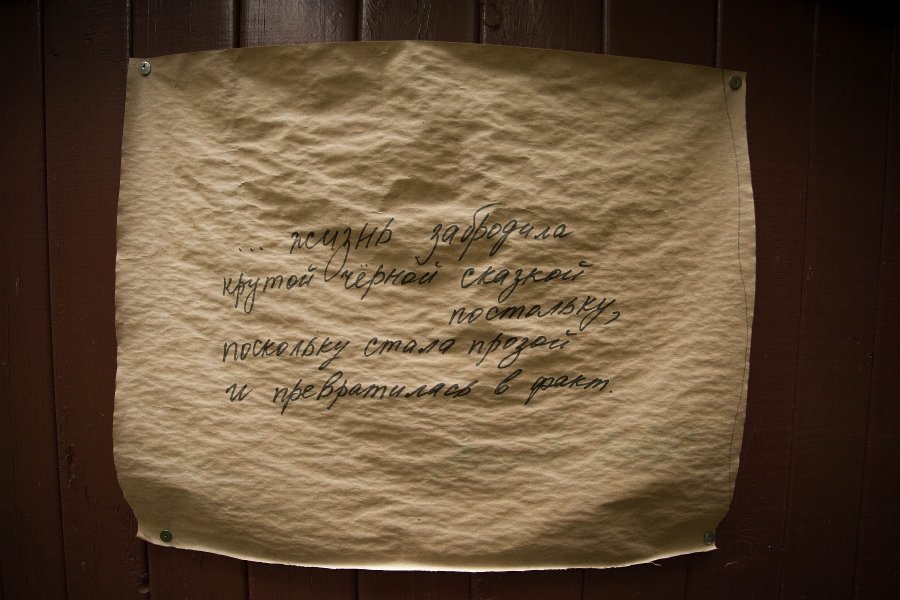 ... жизнь забродила
крутой чёрной сказкой
постольку,
поскольку стала прозой
и превратилась в факт.